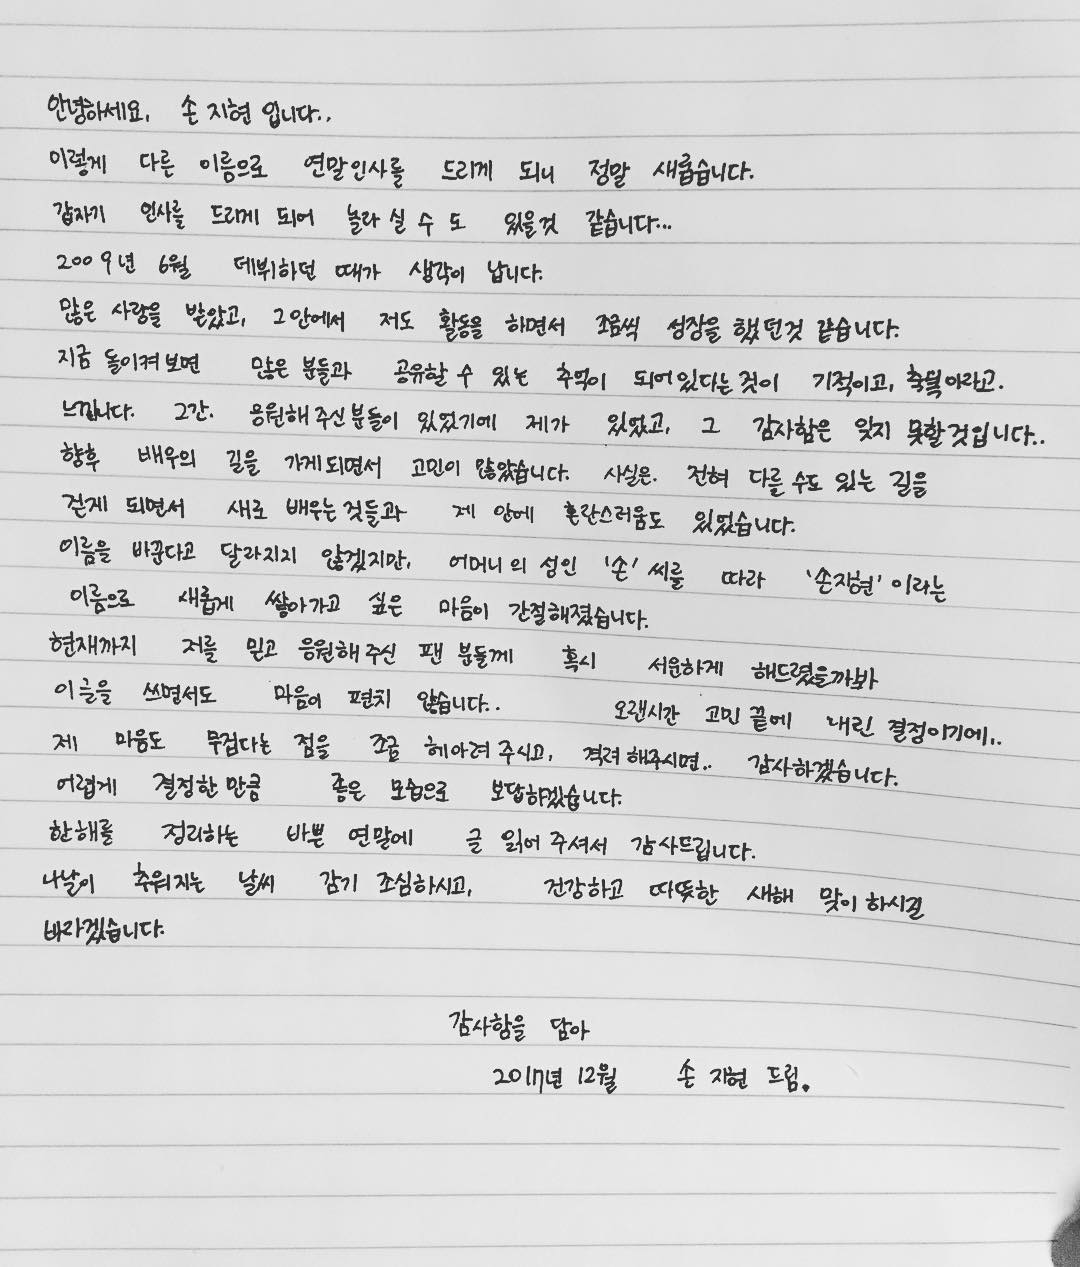 안녕하세요, 손 지현 입니다..
이렇게 다른 이름으로 연말인사를 드리게 되니 정말 새롭습니다.
갑자기 인사를 드리게 되어 놀라 실 수 도 있을것 같습니다...
2009년 6월 데뷔하던 때가 생각이 납니다.
많은 사랑을 받았고, 그안에서 저도 활동을 하면서 조금씩 성장을 했던것 같습니다.
지금 돌이켜보면 많은 분들과 공유할 수 있는 추억이 되어있다는 것이 기적이고, 축복이라고.
느낍니다. 그간. 응원해 주신분들이 있었기에 제가 있었고, 그 감사함은 잊지 못할것입니다..
향후 배우의 길을 가게되면서 고민이 많았습니다. 사실은. 전혀 다를 수도 있는 길을
걷게 되면서 새로 배우는 것들과 제 안에 혼란스러움도 있었습니다.
이름을 바꾼다고 달라지지 않겠지만, 어머니의 성인 '손' 씨를 따라 '손지현' 이라는
이름으로 새롭게 쌓아가고 싶은 마음이 간절해졌습니다.
현재까지 저를 믿고 응원해주신 팬 분들께 혹시 서운하게 해드렸을까봐
이 글을 쓰면서도 마음이 편치 않습니다.. 오랜시간 고민 끝에 내린 결정이기에..
제 마음도 무겁다는 점을 조금 헤아려 주시고, 격려 해주시면.. 감사하겠습니다.
어렵게 결정한 만큼 좋은 모습으로 보답하겠습니다.
한해를 정리하는 바쁜 연말에 글 읽어 주셔서 감사드립니다.
나날이 추워지는 날씨 감기 조심하시고, 건강하고 따뜻한 새해 맞이 하시길
바라겠습니다.
감사함을 담아
2017년 12월 손 지현 드림.